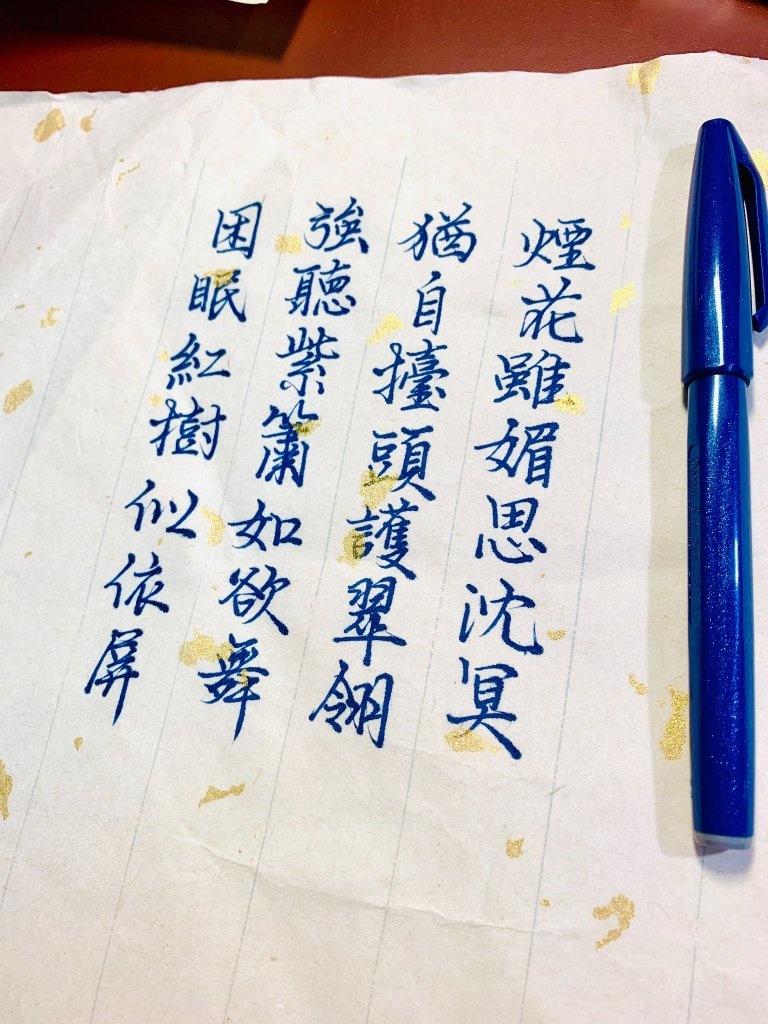 煙花雖媚思沈冥
猶自擡頭護翠翎
強聽紫簫如欲舞
困眠紅樹似依屏